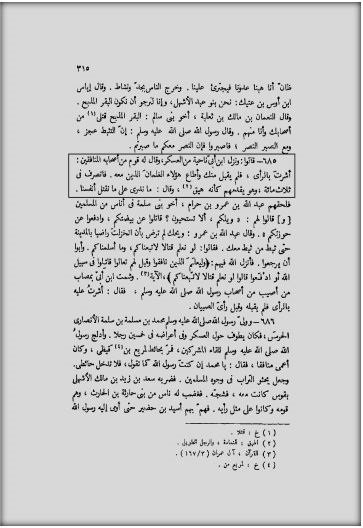 ٣١٥
ظانّ أنا هبنا عدوّنا فيجترئ علينا . وخرج الناس بجدّ ونشاط . وقال إياس
ابن أوس بن عتيك : نحن بنو عبد الأشهل ، وإنا نرجو أن نكون البقر المذبح .
وقال النعمان بن مالك بن ثعلبة ، أخو بني سالم : البقر المذبح قتلى (١) من
أصحابك وأنا منهم . وقال رسول الله صلى الله عليه وسلم : إنّ التثبط عجز ،
ومع الصبر النصر ؛ فاصبروا فإن النصر معكم ما صبرتم .
٦٨٥ – قالوا : ونزل ابن أبيّ ناحية من العسكر ، وقال له قوم من أصحابه المنافقين :
أشرتَ بالرأى ، فلم يقبل منك وأطاع هؤلاء الغلمان الذين معه . فانصرف فى
ثلاثمائة ، وهو يقدمهم كأنه هيق (٢) ، وقال : ما ندرى على ما نقتل أنفسنا .
فلحقهم عبد الله بن عمرو بن حرام ، أخو بنى سلمة فى أناس من المسلمين
[ و ] قالوا لهم : « ويلكم ، ألا تستحيون ؟ قاتلوا عن بيضتكم ، وادفعوا عن
حوزتكم » . وقال عبد الله بن عمرو : ويحك لم ترض بأن انخزلت راضيا بالمدينة
حتى ثبط من ثبط معك . فقالوا : لو نعلم قتالا لاتبعناكم ، وما أسلمناكم . وأبوا
أن يرجعوا . فأنزل الله فيهم : ( وليعلم الذين نافقوا وقيل لهم تعالوا قاتلوا فى سبيل
الله أو ادفعوا قالوا لو نعلم قتالا لاتبعناكم ) ، الآية (٣) . وشمت ابن أبيّ بمصاب
من أصيب من أصحاب رسول الله صلى الله عليه وسلم ، فقال : أشرتُ عليه
بالرأى فلم يقبله وقبل رأى الصبيان .
٦٨٦ – وولّى رسول الله صلى الله عليه وسلم محمد بن مسلمة بن سلمة الأنصارى
الحرسَ ، فكان يطوف حول العسكر وفى أعراضه فى خمسين رجلا . وأدلج رسول
الله صلى الله عليه وسلم للقاء المشركين ، فمرّ بحائط لمربع بن (٤) قيظى ، وكان
أعمى منافقا ، فقال : يا محمد إن كنت رسول الله كما تقول ، فلا تدخل حائطى .
وجعل يحثو التراب فى وجوه المسلمين . فضربه سعد بن زيد بن مالك الأشهلى
بقوس كانت معه ، فشجّه . فغضب له ناس من بنى حارثة بن الحارث ، وهم
قومه وكانوا على مثل رأيه . فهمّ بهم أسيد بن حضير حتى أومى إليه رسول الله
( ١ ) خ : قتلا .
( ٢ ) الهيق : النعامة ، والرجل الطويل .
( ٣ ) القرآن ، آل عمران ( ١٦٧/٣ ) .
( ٤ ) خ : لمربع من .